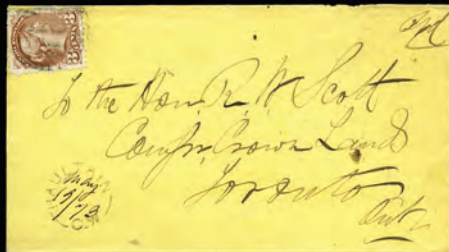 To the Hon. R. W. Scott
Comsr. Crown Lands
Toronto
Ont.
May
19/
/73